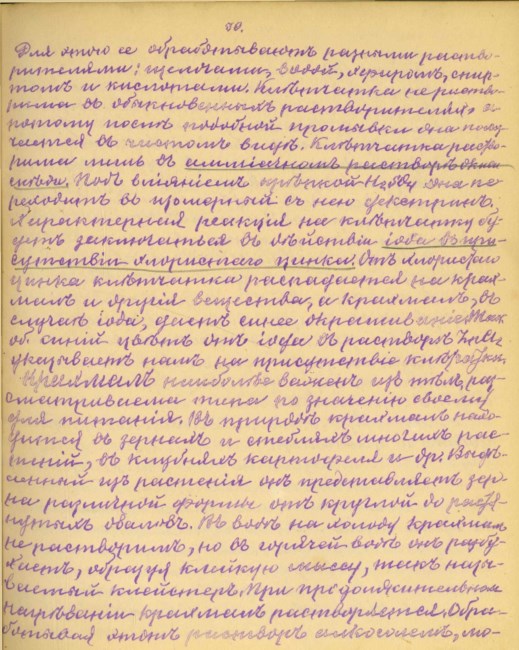 50.
Для этого ее обрабатываютъ разными раство-
рителями: щелочами, водой, эфиромъ, спир-
томъ и кислотами. Клѣтчатка нераство-
рима въ обыкновенныхъ растворителяхъ и
потому послѣ подобной промывки она полу-
чается въ чистомъ видѣ. Клѣтчатка раство-
рима лишь въ амміачномъ растворѣ окиси
мѣди. Подъ вліяніемъ крѣпкой H2SO4 она пе-
реходитъ въ изомерный съ нею декстринъ.
Характерная реакція на клѣтчатку бу-
детъ заключаться въ дѣйствіи іода въ при-
сутствіи хлористаго цинка. Отъ хлористаго
цинка клѣтчатка распадается на крах-
малъ и другія вещества, а крахмалъ, въ
случаѣ іода, даетъ синее окрашиваніе. Так.
об. синій цвѣтъ отъ іода въ растворѣ ZnCl2
указываетъ намъ на присутствіе клѣтчатки.
Крахмалъ наиболѣе важенъ изъ тѣлъ раз-
сматриваемаго типа по значенію своему
для питанія. Въ природѣ крахмалъ нахо-
дится въ зернахъ и стебляхъ многихъ рас-
теній, въ клубняхъ картофеля и др. Выдѣ-
ленный изъ растенія онъ представляетъ зер-
на различной формы отъ круглой до растя-
нутыхъ оваловъ. Въ водѣ на холоду крахмалъ
не растворимъ, но въ горячей водѣ онъ разбу-
хаетъ, образуя клейкую массу, такъ назы-
ваемый клейстеръ. При продолжительномъ
нагрѣваніи крахмалъ растворяется. Обра-
батывая этотъ растворъ алкоголемъ, мо-